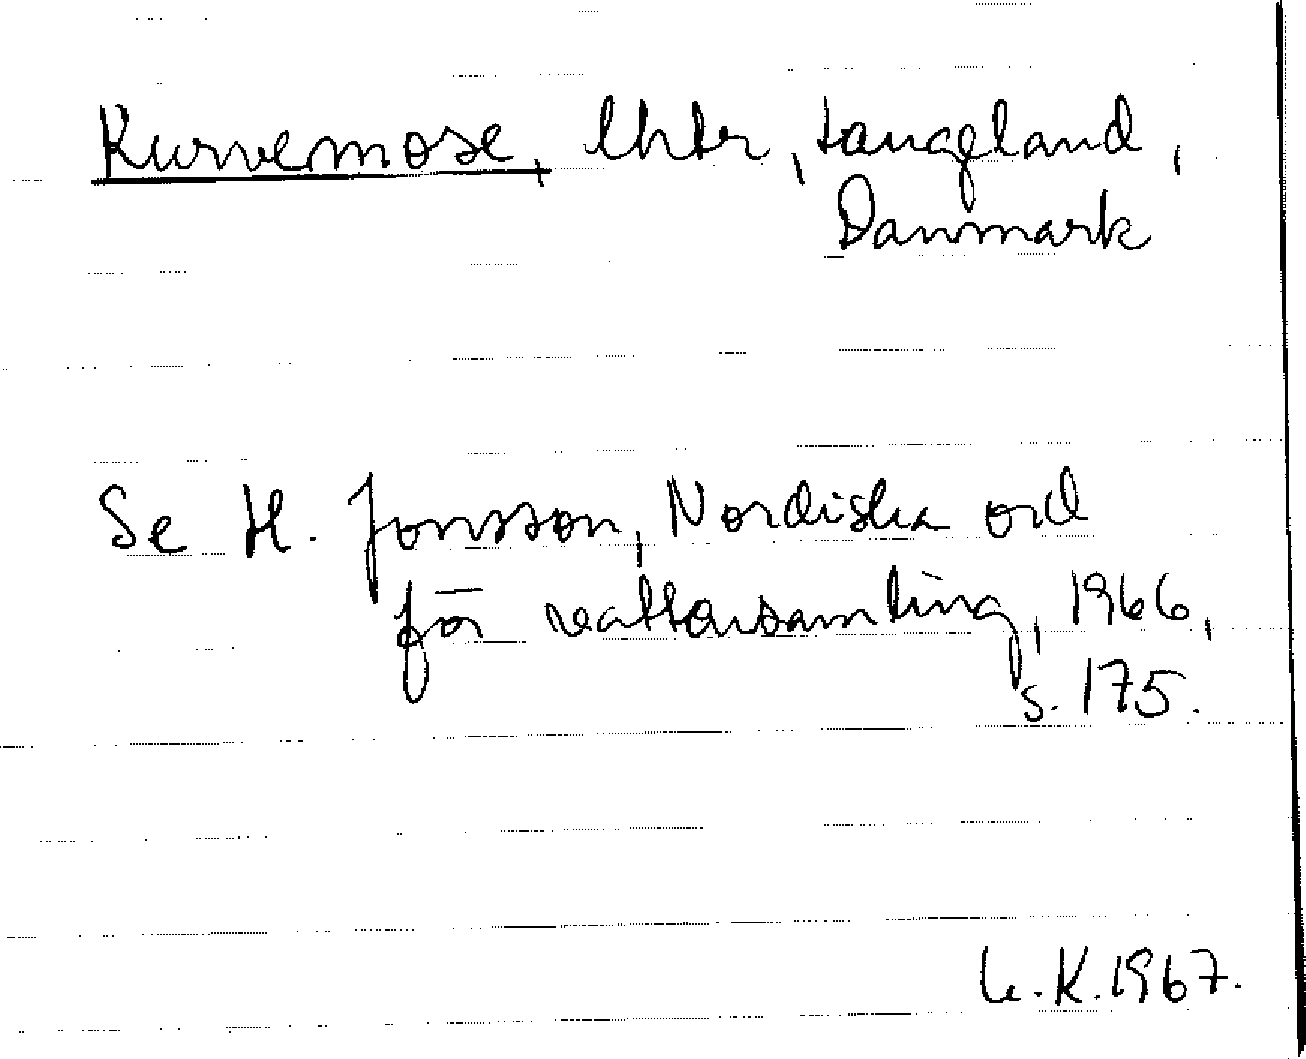 Kurvemose, , Langeland,
Danmark
Se H. Jonsson, Nordiska ord
för vattensamling, 1966,
s. 175.
K. 1967.